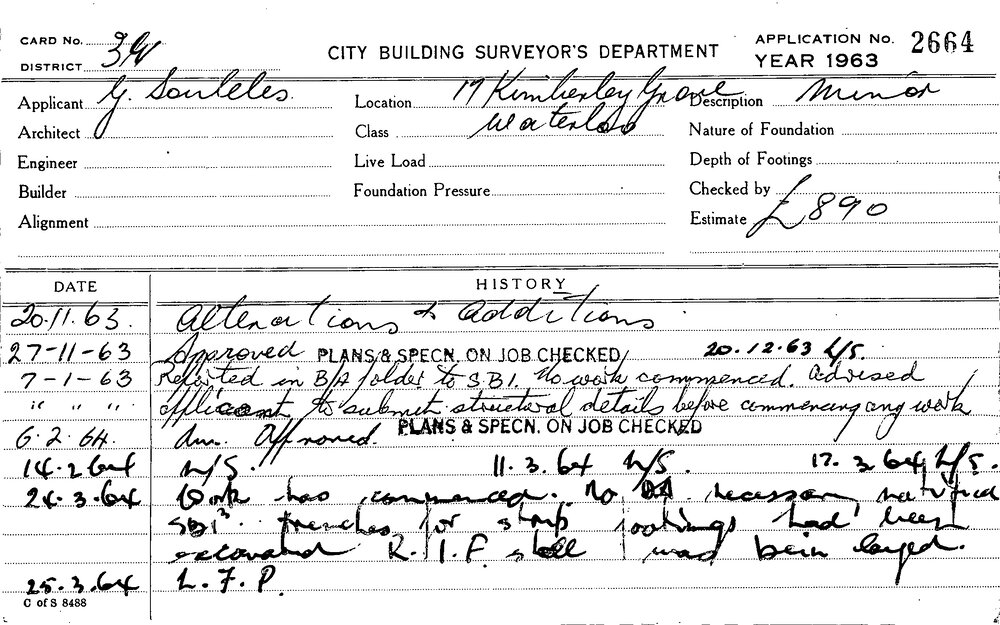 CARD No. 3W
DISTRICT
CITY BUILDING SURVEYOR'S DEPARTMENT
APPLICATION No. 2664
YEAR 1963
Applicant G. Souleles.
Location 17 Kimberley Grove
Waterloo
Description Minor
Architect
Class
Nature of Foundation
Engineer
Live Load
Depth of Footings
Builder
Foundation Pressure
Checked by
Alignment
Estimate £890
DATE HISTORY
20.11.63. Alterations & Additions
27-11-63 Approved PLANS & SPECN. ON JOB CHECKED 20.12.63 N/S.
7-1-63 Reported in B/A folder to SBI. No work commenced. Advised
" " " applicant to submit structural details before commencing any work
6.2.64. Am. Approved. PLANS & SPECN. ON JOB CHECKED
14.2.64 N/S. 11.3.64 N/S. 17.3.64 N/S.
24.3.64 Work has commenced. No necessary notified
SBI trenches for strip footings had been
excavated R.I.F steel was being layed.
25.3.64 L.F.P.
C of S 8488